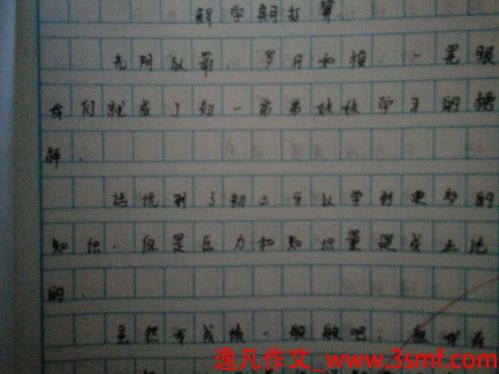 新学期打算
光阴似箭 岁月如梭.一晃眼
我们就成了初一弟弟妹妹学习的榜
样.
话说到了初二可以学到更多的
知识.但是压力和知识量是成正比
的.
虽然成绩一般般吧.
逸凡作文_www.3smf.com